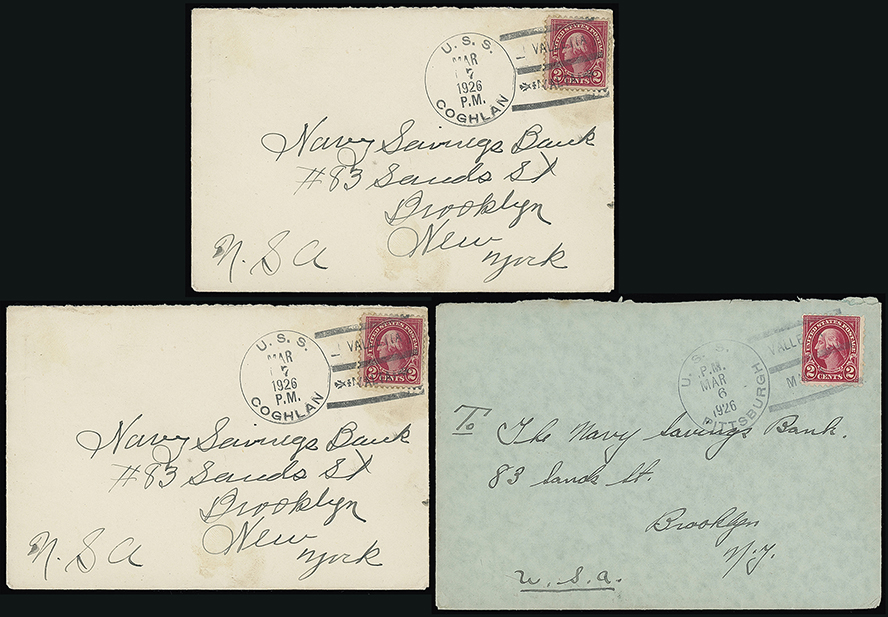 U. S. S.
MAR
7
1926
P.M.
COGHLAN
UNITED STATES POSTAGE
2 CENTS 2
Navy Savings Bank
#83 Sands St
Brooklyn
New
York
U.S.A
U. S. S.
MAR
7
1926
P.M.
COGHLAN
UNITED STATES POSTAGE
2 CENTS 2
Navy Savings Bank
#83 Sands St
Brooklyn
New
York
U.S.A
U. S. S.
P.M.
MAR
6
1926
PITTSBURGH
UNITED STATES POSTAGE
2 CENTS 2
To The Navy Savings Bank.
83 Sands St.
Brooklyn
N.Y.
U.S.A.